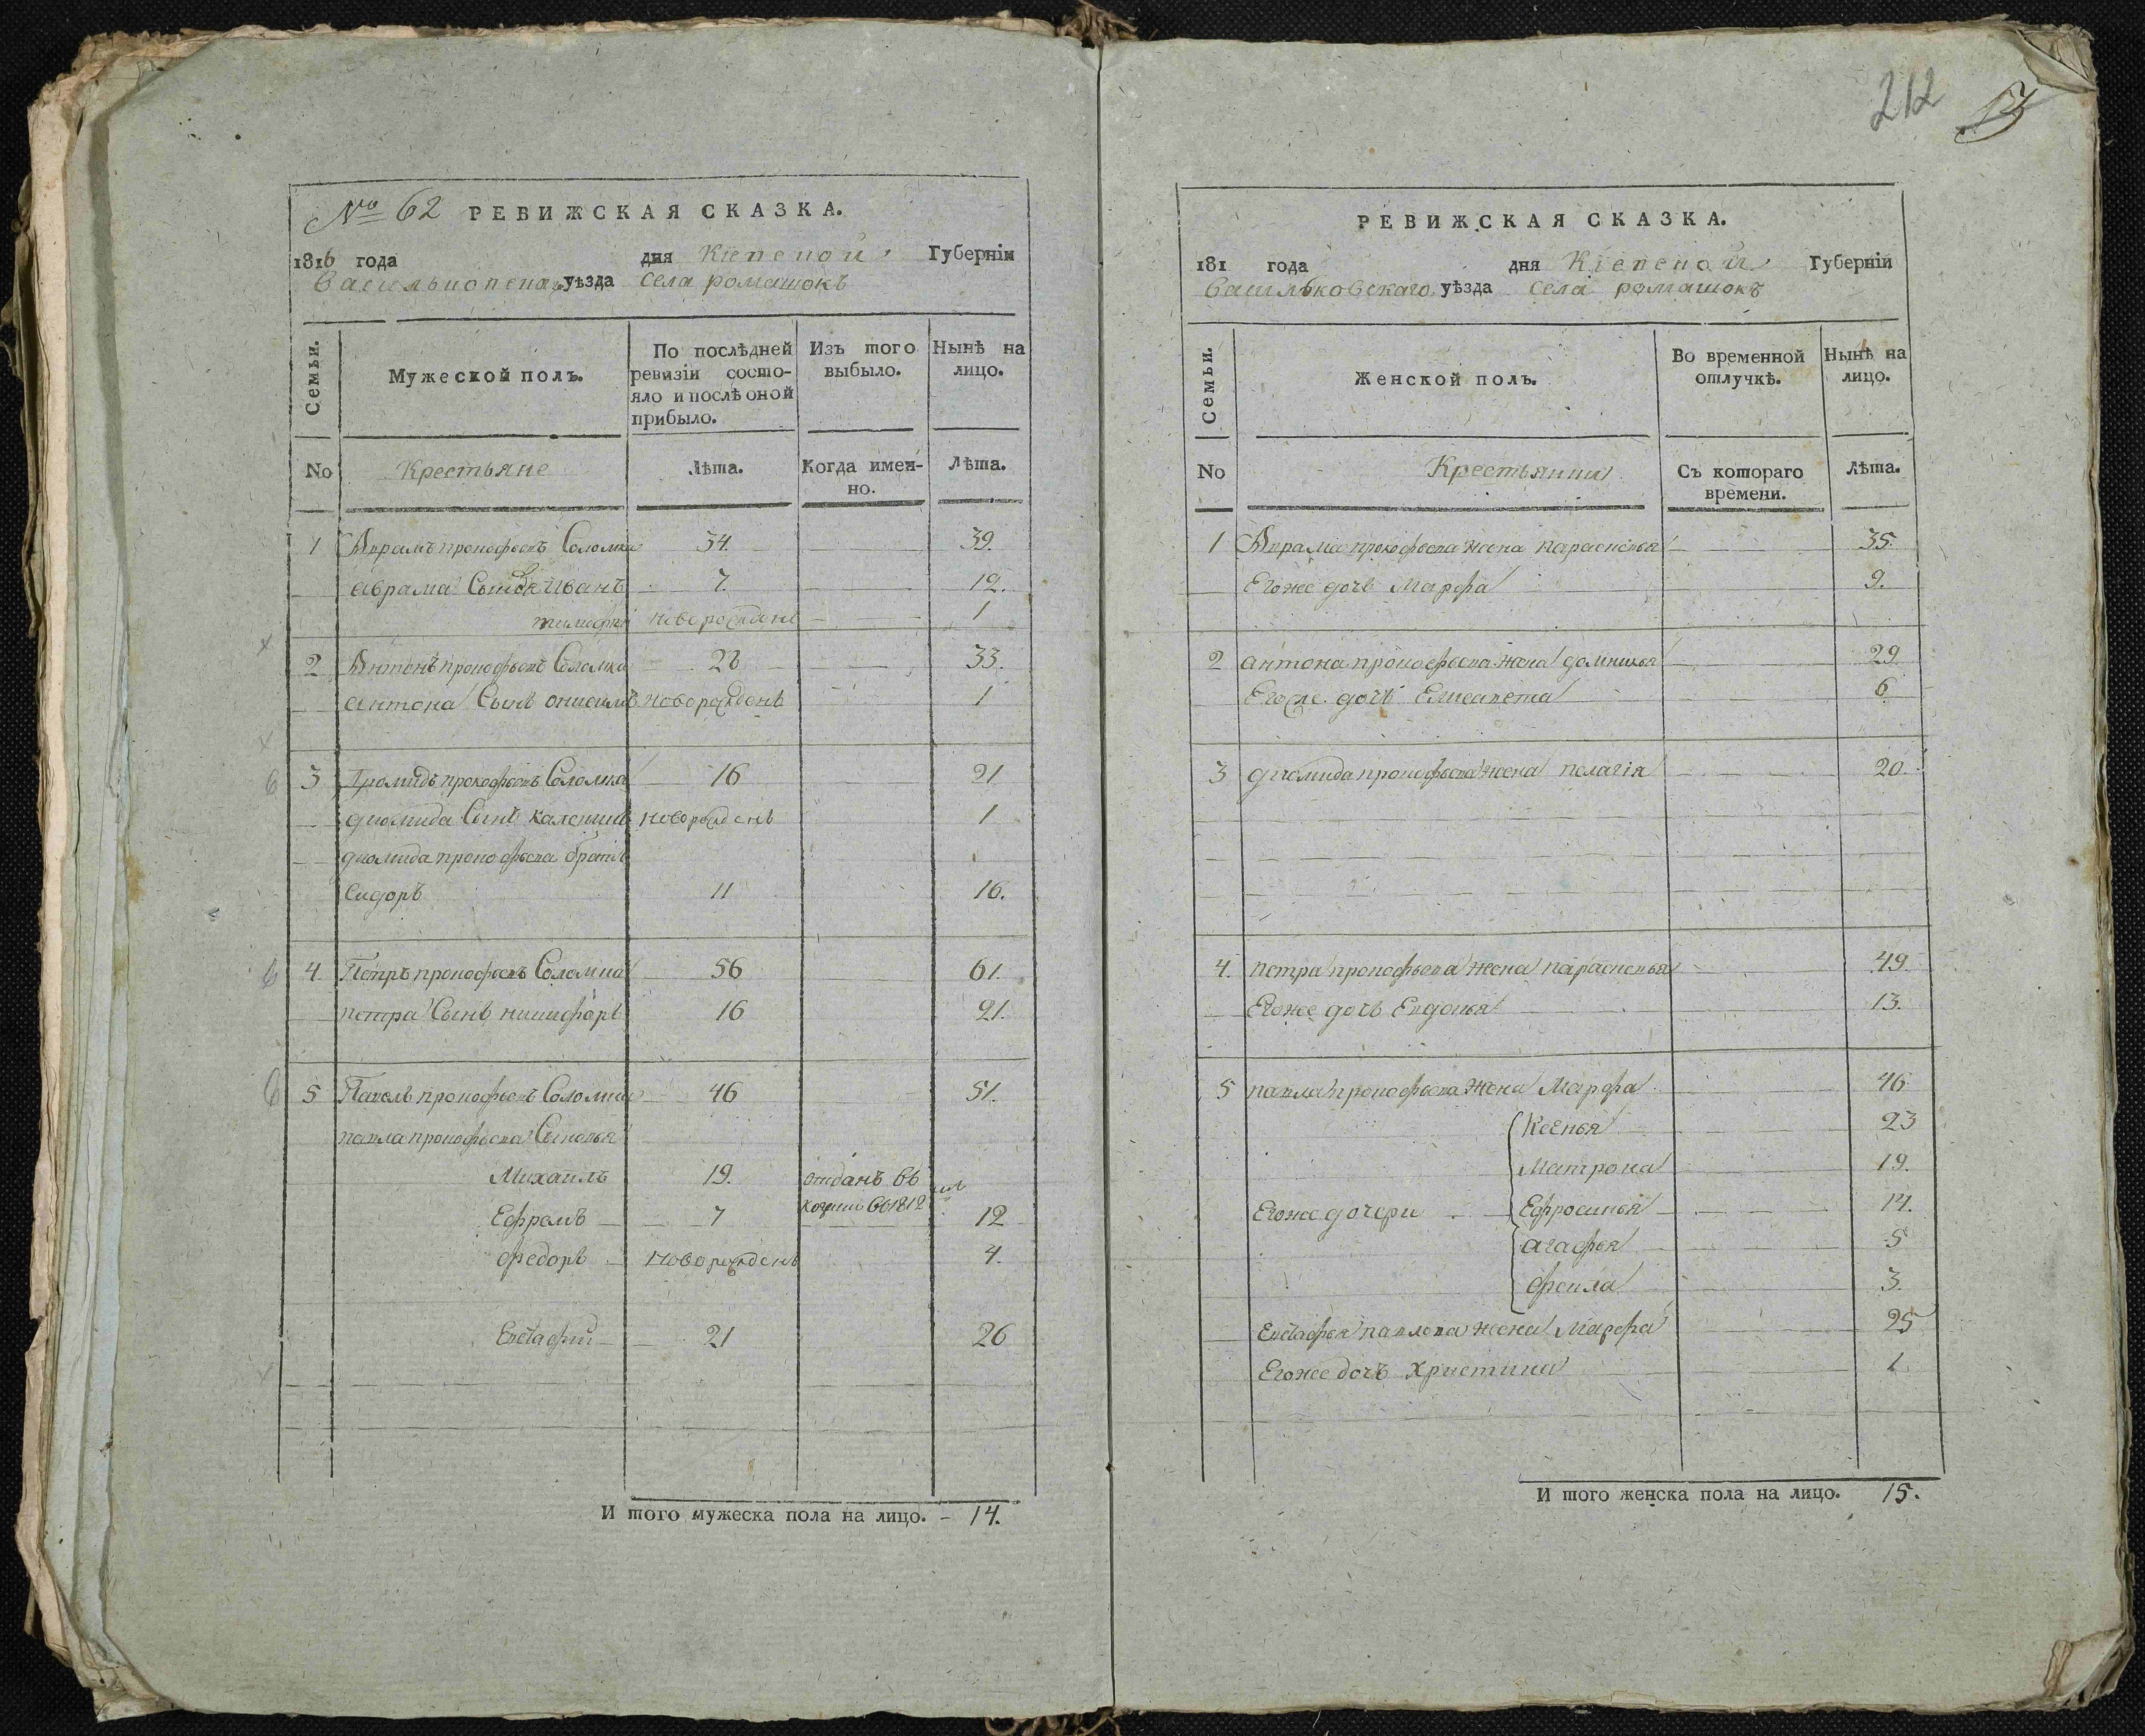 № 62 РЕВИЖСКАЯ СКАЗКА.
1816 года дня Кіевской Губерніи
Васильковскаго уѣзда Села ромашокъ
Семьи. Мужеской полъ. По послѣдней ревизіи состояло и послѣ оной прибыло. Изъ того выбыло. Нынѣ на лицо.
No Крестьяне Лѣта. Когда имен-но. Лѣта.
1 Аврамъ прокофьевъ Соломка 34. 39.
аврама Сынъ Иванъ 7. 12.
тимофѣй новорожденъ 1
2 Антонъ прокофьевъ Соломка 28 33.
антона Сынъ онисимъ новорожденъ 1
3 Дїомидъ прокофьевъ Соломка 16 21
дїомида Сынъ новорожденъ 1
дїомида прокофьева братъ
Сидоръ 11 16.
4 Петръ прокофьевъ Соломка 56 61.
петра Сынъ никифоръ 16 21.
5 Павелъ прокофьевъ Соломка 46 51.
павла прокофьева Сыновья
Михаилъ 19. отданъ въ
Ефремъ 7 въ 1812 12
федоръ Новорожденъ 4.
Евстафій 21 26
И того мужеска пола на лицо. - 14.
212
РЕВИЖСКАЯ СКАЗКА.
181 года дня Кіевской Губерніи
Васильковскаго уѣзда Села ромашокъ
Семьи. Женской полъ. Во временной отлучкѣ. Нынѣ на лицо.
No Крестьянки Съ котораго времени. Лѣта.
1 Аврама прокофьева жена парасковья 35.
Егоже дочь Марфа 9.
2 антона прокофьева жена домникія 29
Егоже дочь Елисавета 6
3 дїомида прокофьева жена пелагія 20.
4. петра прокофьева жена парасковья 49.
Егоже дочь Евдокья 13.
5 павла прокофьева жена Марфа 46
Ксенья 23
Матрона 19.
Егоже дочери Ефросинья 14.
агафья 5
фекла 3.
Евстафья павлова жена Марфа 25
Егоже дочь Христина 1.
И того женска пола на лицо. 15.